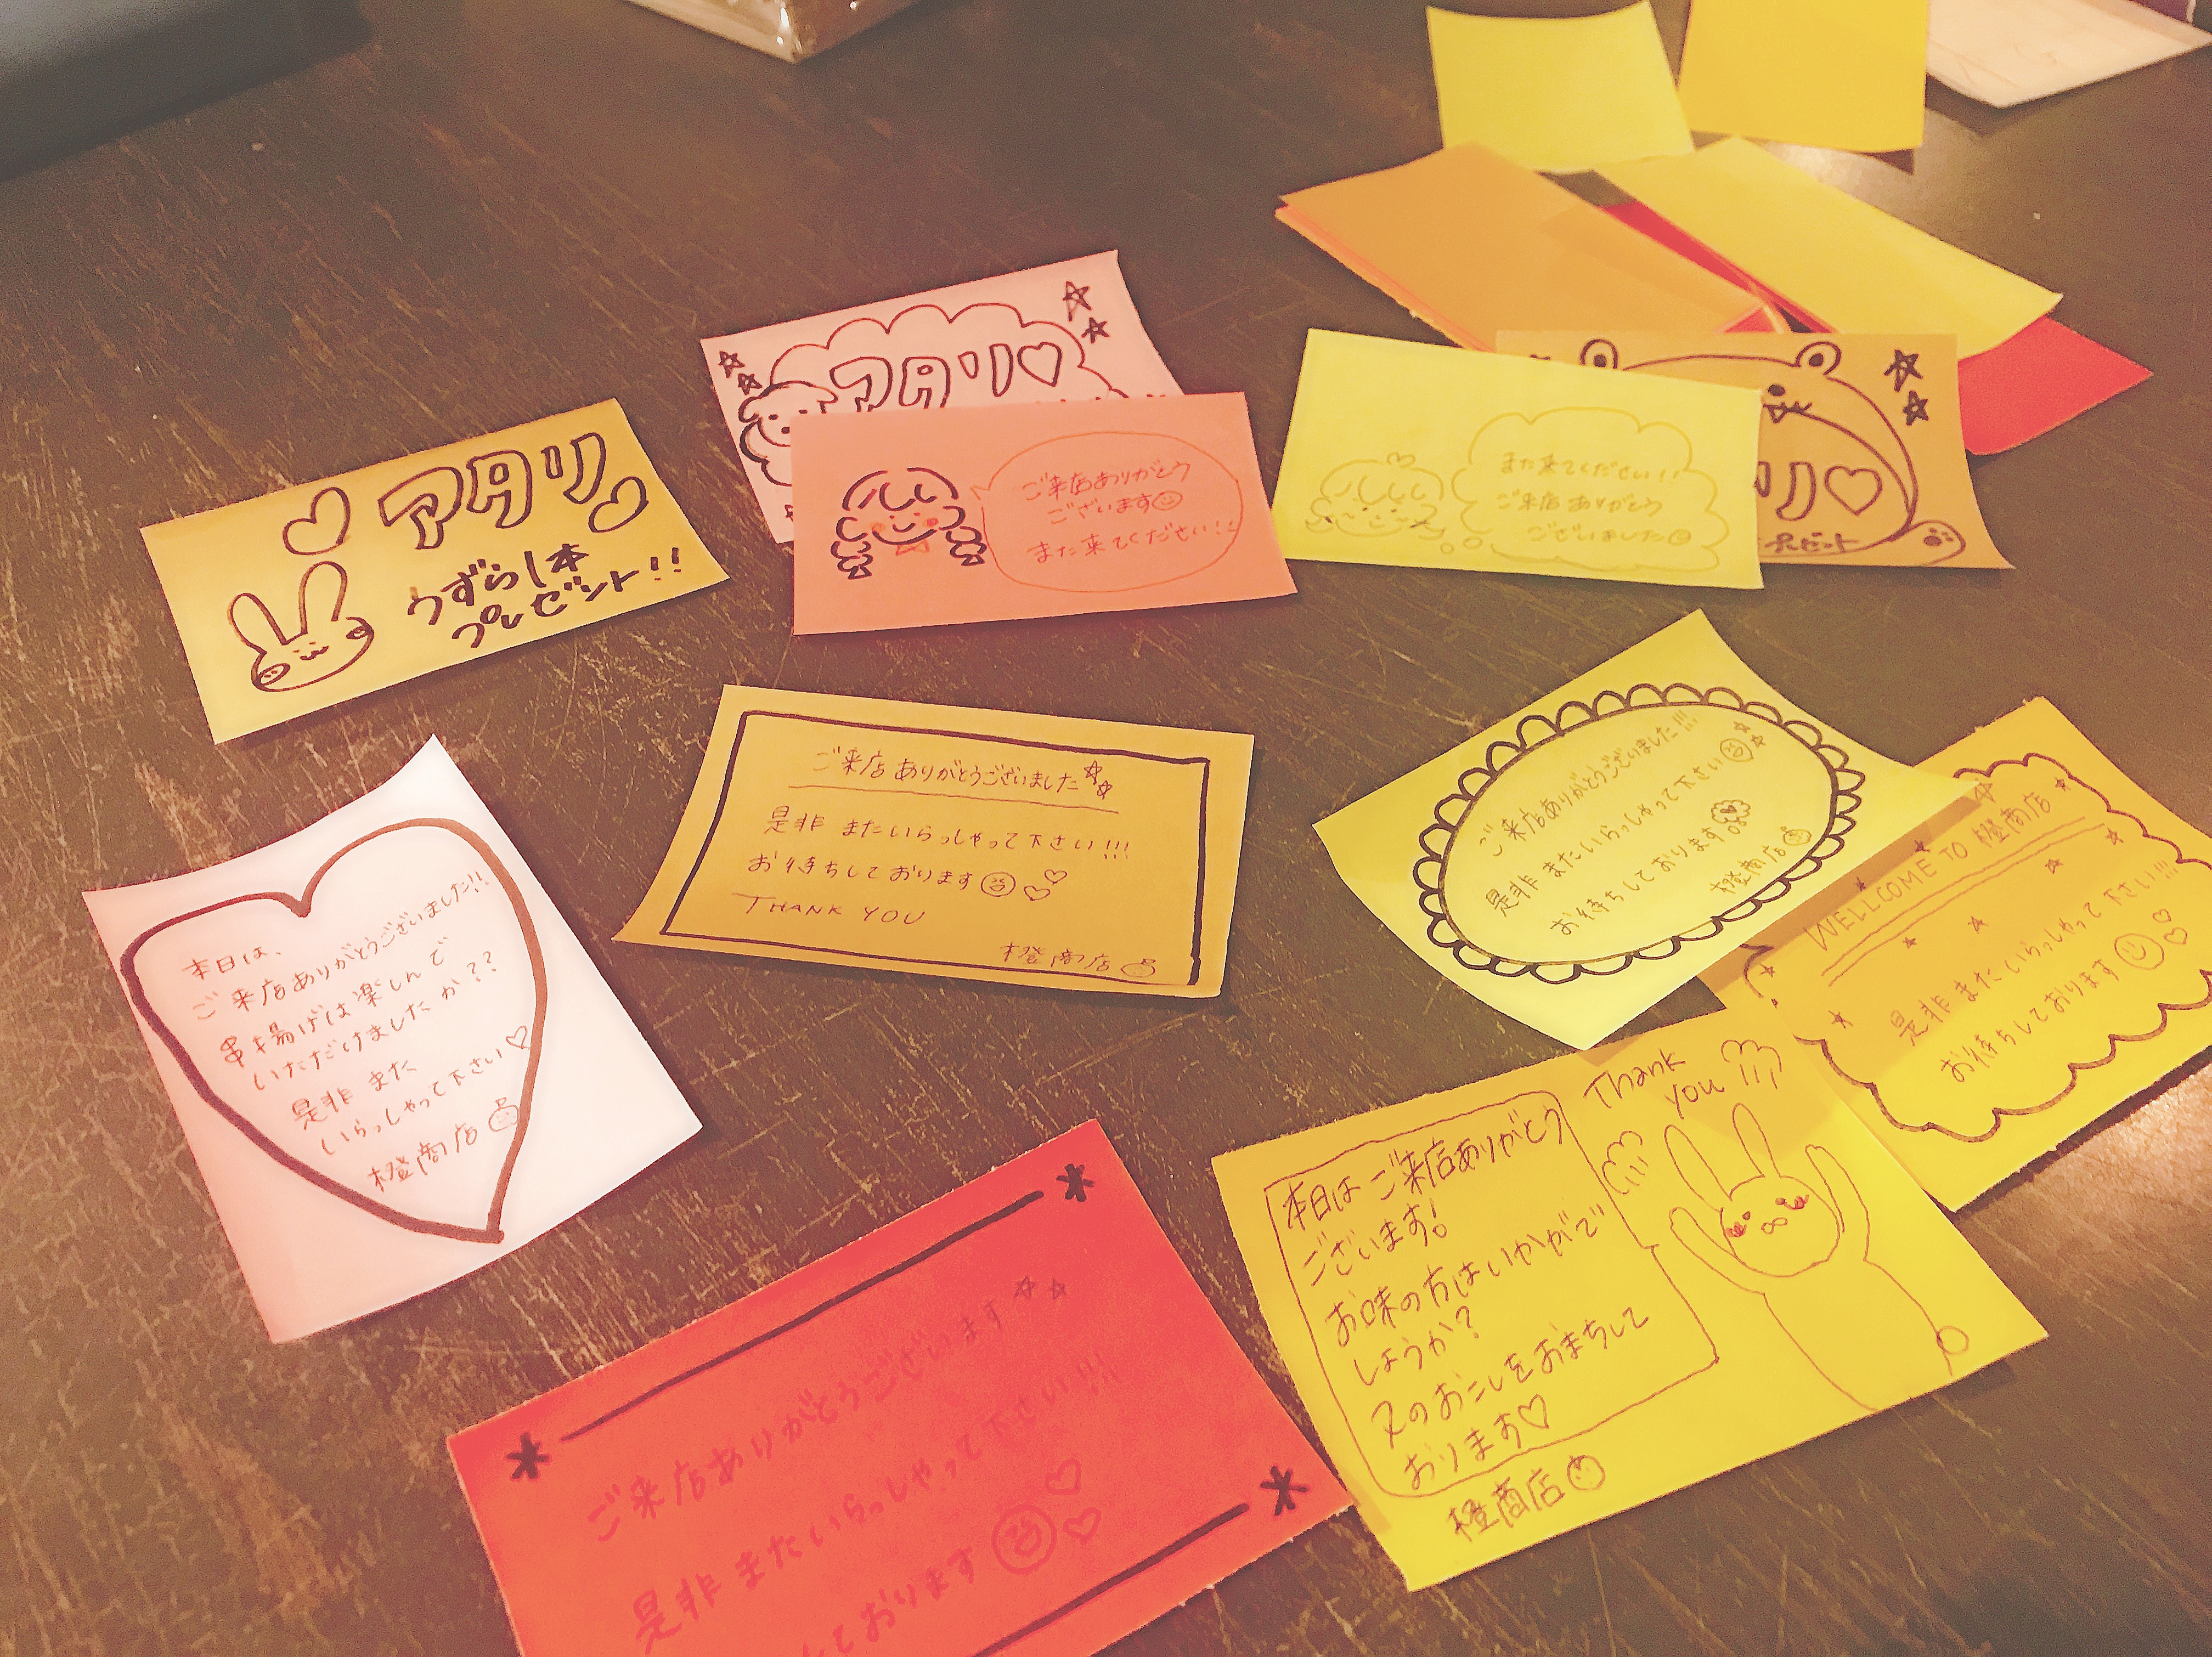 アタリ
うずら1本
プレゼント!!
アタリ♡
ご来店ありがとう
ございます
また来てください!!
また来てください!!
ご来店ありがとう
ございました
リ♡
本日は、
ご来店ありがとうございました!!
串揚げは楽しんで
いただけましたか??
是非また
いらっしゃって下さい♡
橙商店
ご来店ありがとうございました
是非またいらっしゃって下さい!!!
お待ちしております
THANK YOU
橙商店
ご来店ありがとうございました!!!
是非またいらっしゃって下さい
お待ちしております
橙商店
WELLCOME TO 橙商店
是非またいらっしゃって下さい!!!
お待ちしております
ご来店ありがとうございます
是非またいらっしゃって下さい!!!
しております
Thank
you
本日はご来店ありがとう
ございます!
お味の方はいかがで
しょうか?
又のおこしをおまちして
おります♡
橙商店